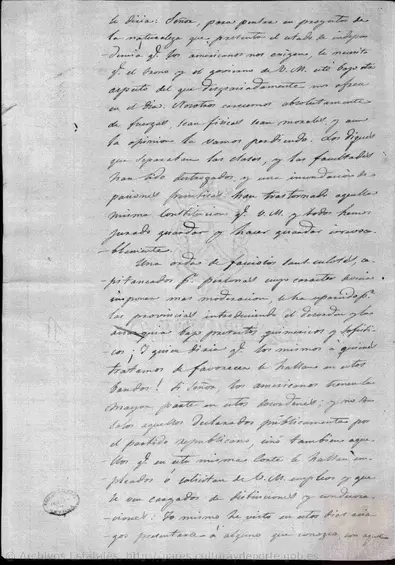 le diria: Señor, para pensar en proyectos de
la naturaleza que presenta el estado de indepen
dencia qe. los americanos nos exigen, se necesita
qe. el trono y el gobierno de V. M. esté bajo otro
aspecto del que desgraciadamente nos ofrece
en el dia. Nosotros carecemos absolutamente
de fuerzas, sean fisicas sean morales, y aun
la opinion la vamos perdiendo. Los diques
que separaban las clases, y las facultades
han sido destrozados, y una inundacion de
pasiones han trastornado aquella
misma Constitucion qe. V. M. y todos hemos
jurado guardar y hacer guardar irrevoca
blemente.
Una orda de facciosos
capitaneados pr. personas cuyo caracter
imponer mas moderacion, se ha esparcido pr.
las provincias introduciendo el desorden y la
anarquia bajo pretestos quimericos y sofisti
cos; Y quien diria qe. los mismos á quienes
tratamos de favorecer se hallan en estos
bandos! Si Señor los americanos tienen la
mayor parte en estos desordenes; y no
solo aquellos declarados públicamente por
el partido republicano, sino tambien aque
llos qe. en esta misma Corte se hallan em
pleados ó solicitan de V. M. empleos y que
se ven cargados de distinciones y condecora
ciones: Yo mismo he visto en estos dias
presentarse á alguno que conozco con